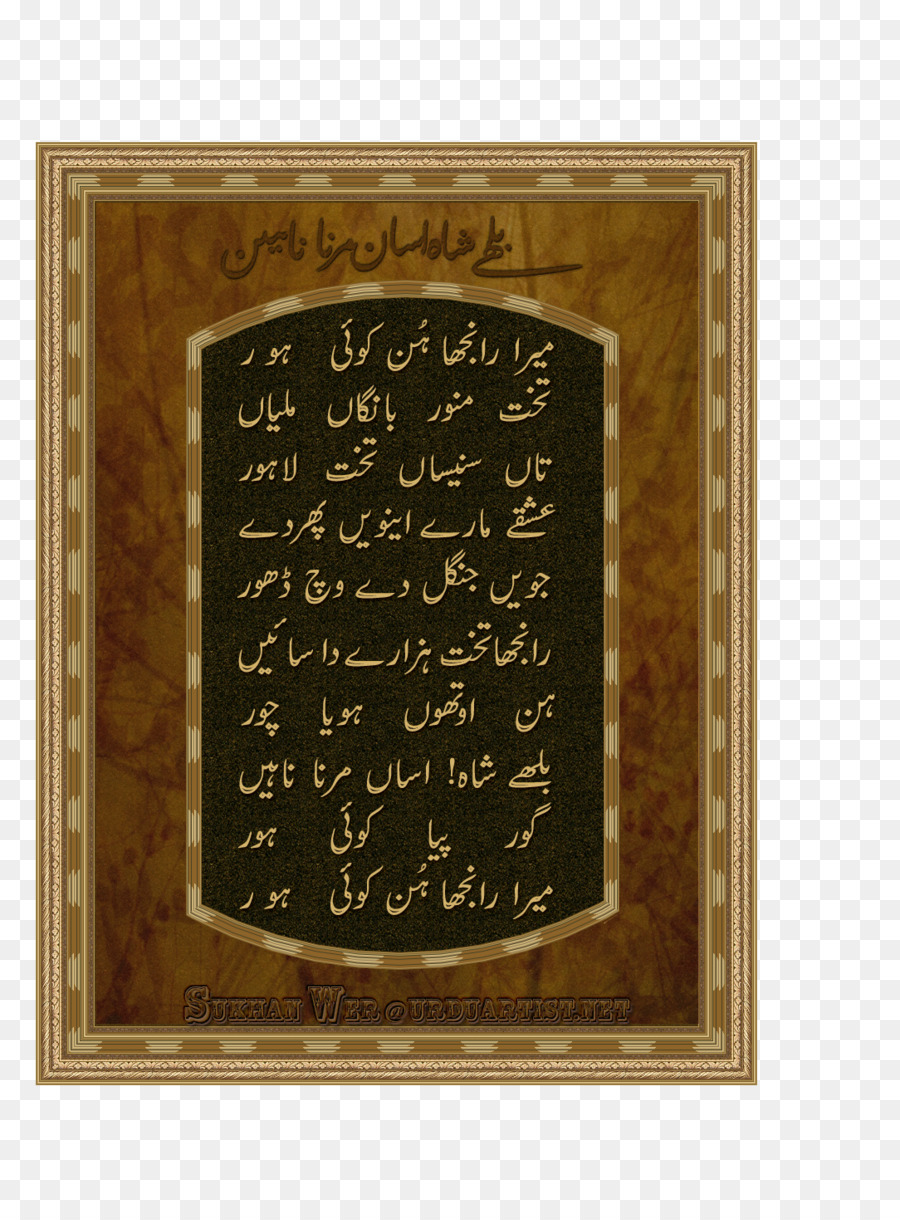 بلھے شاہ اساں مرنا ناہیں
میرا رانجھا ہُن کوئی ہو ر
تخت منور بانگاں ملیاں
تاں سنیساں تخت لاہور
عشقے مارے اینویں پھردے
جویں جنگل دے وچ ڈھور
رانجھا تخت ہزارے دا سائیں
ہن اوتھوں ہویا چور
بلھے شاہ! اساں مرنا ناہیں
گور پیا کوئی ہور
میرا رانجھا ہُن کوئی ہو ر
Sukhan Wer @ urduartist.net